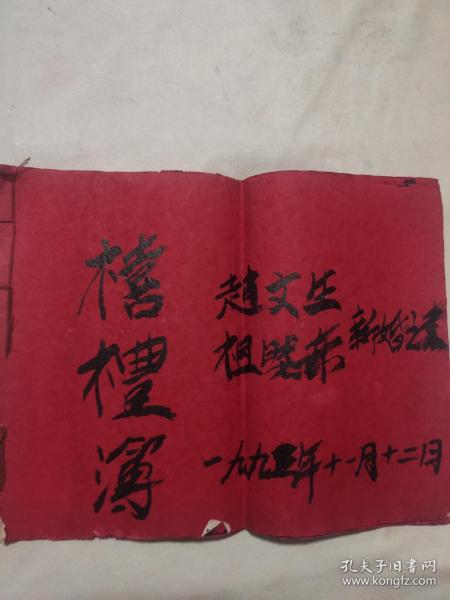 禧禮簿
趙文生
祖晓东 新婚之喜
一九九 年十一月十二日
孔夫子旧书网
www.kongfz.com